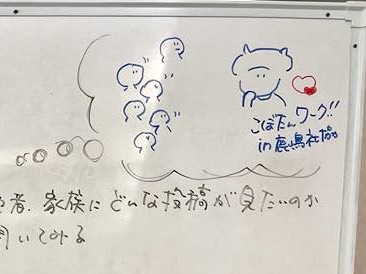 こばたんワーク!!
in 鹿島社協
者、家族にどんな投稿が見たいのか
聞いてみる